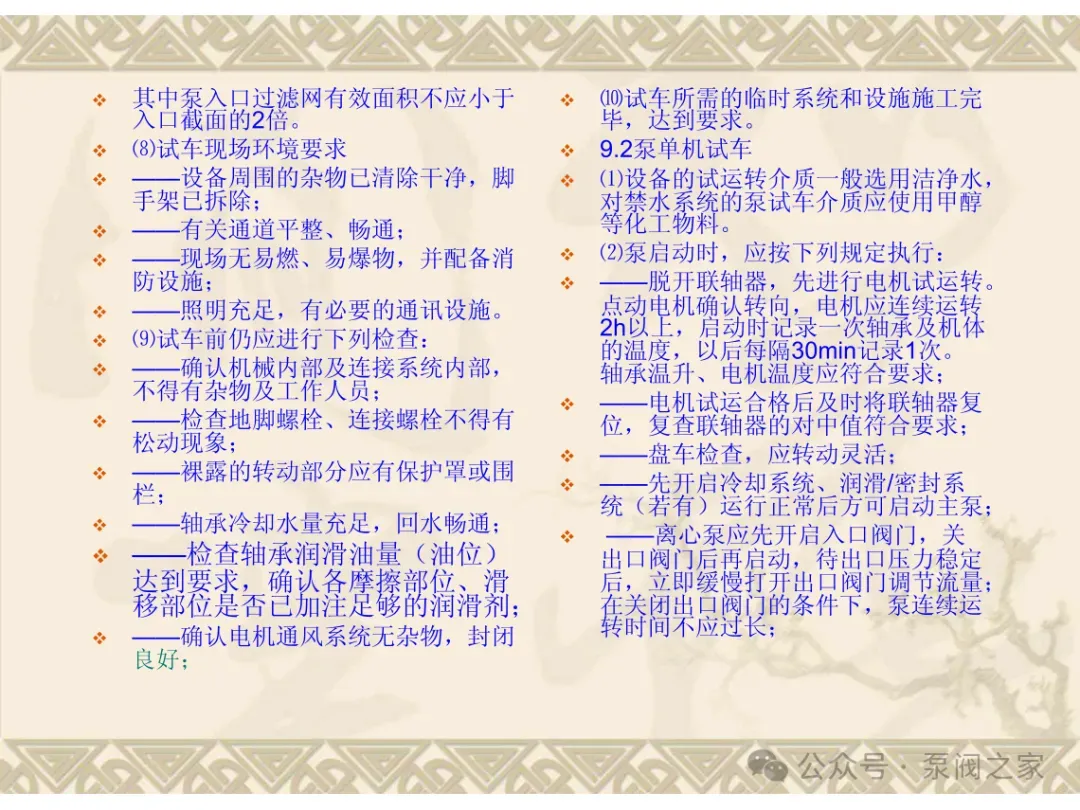 其中泵入口过滤网有效面积不应小于
入口截面的2倍。
⑻试车现场环境要求
——设备周围的杂物已清除干净，脚
手架已拆除；
——有关通道平整、畅通；
——现场无易燃、易爆物，并配备消
防设施；
——照明充足，有必要的通讯设施。
⑼试车前仍应进行下列检查：
——确认机械内部及连接系统内部，
不得有杂物及工作人员；
——检查地脚螺栓、连接螺栓不得有
松动现象；
——裸露的转动部分应有保护罩或围
栏；
——轴承冷却水量充足，回水畅通；
——检查轴承润滑油量（油位）
达到要求，确认各摩擦部位、滑
移部位是否已加注足够的润滑剂；
——确认电机通风系统无杂物，封闭
良好；
⑽试车所需的临时系统和设施施工完
毕，达到要求。
9.2泵单机试车
⑴设备的试运转介质一般选用洁净水，
对禁水系统的泵试车介质应使用甲醇
等化工物料。
⑵泵启动时，应按下列规定执行：
——脱开联轴器，先进行电机试运转。
点动电机确认转向，电机应连续运转
2h以上，启动时记录一次轴承及机体
的温度，以后每隔30min记录1次。
轴承温升、电机温度应符合要求；
——电机试运合格后及时将联轴器复
位，复查联轴器的对中值符合要求；
——盘车检查，应转动灵活；
——先开启冷却系统、润滑/密封系
统（若有）运行正常后方可启动主泵；
——离心泵应先开启入口阀门，关
出口阀门后再启动，待出口压力稳定
后，立即缓慢打开出口阀门调节流量；
在关闭出口阀门的条件下，泵连续运
转时间不应过长；
公众号·泵阀之家